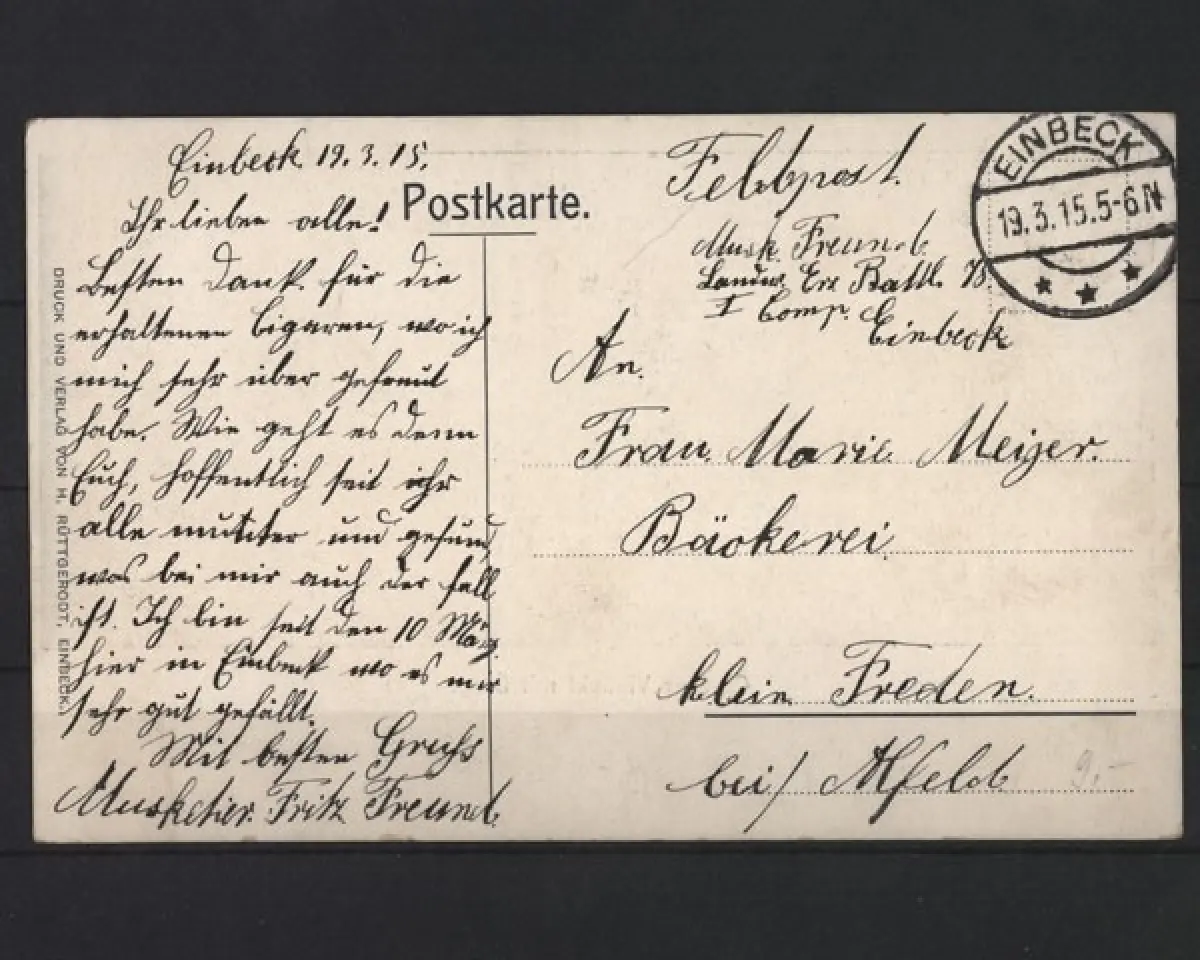 Einbeck 19. 3. 15.
Ihr lieben alle!
Besten Dank für die
erhaltenen Cigaren, wo ich
mich sehr über gefreut
habe. Wie geht es denn
Euch, hoffentlich seit ihr
alle munter und gesund
was bei mir auch der fall
ist. Ich bin seit den 10 März
hier in Einbeck wo es mir
sehr gut gefällt.
Mit besten Gruß
Musketier Fritz Freund.
DRUCK UND VERLAG VON H. RÜTTGERODT, EINBECK.
Postkarte.
Feldpost.
Musk. Freund.
Landw. Ers Battl. 78.
I Comp.
Einbeck
EINBECK
19.3.15.5-6N
An.
Frau Marie Meijer.
Bäckerei
klein Freden.
bei/ Alfeld
9.-